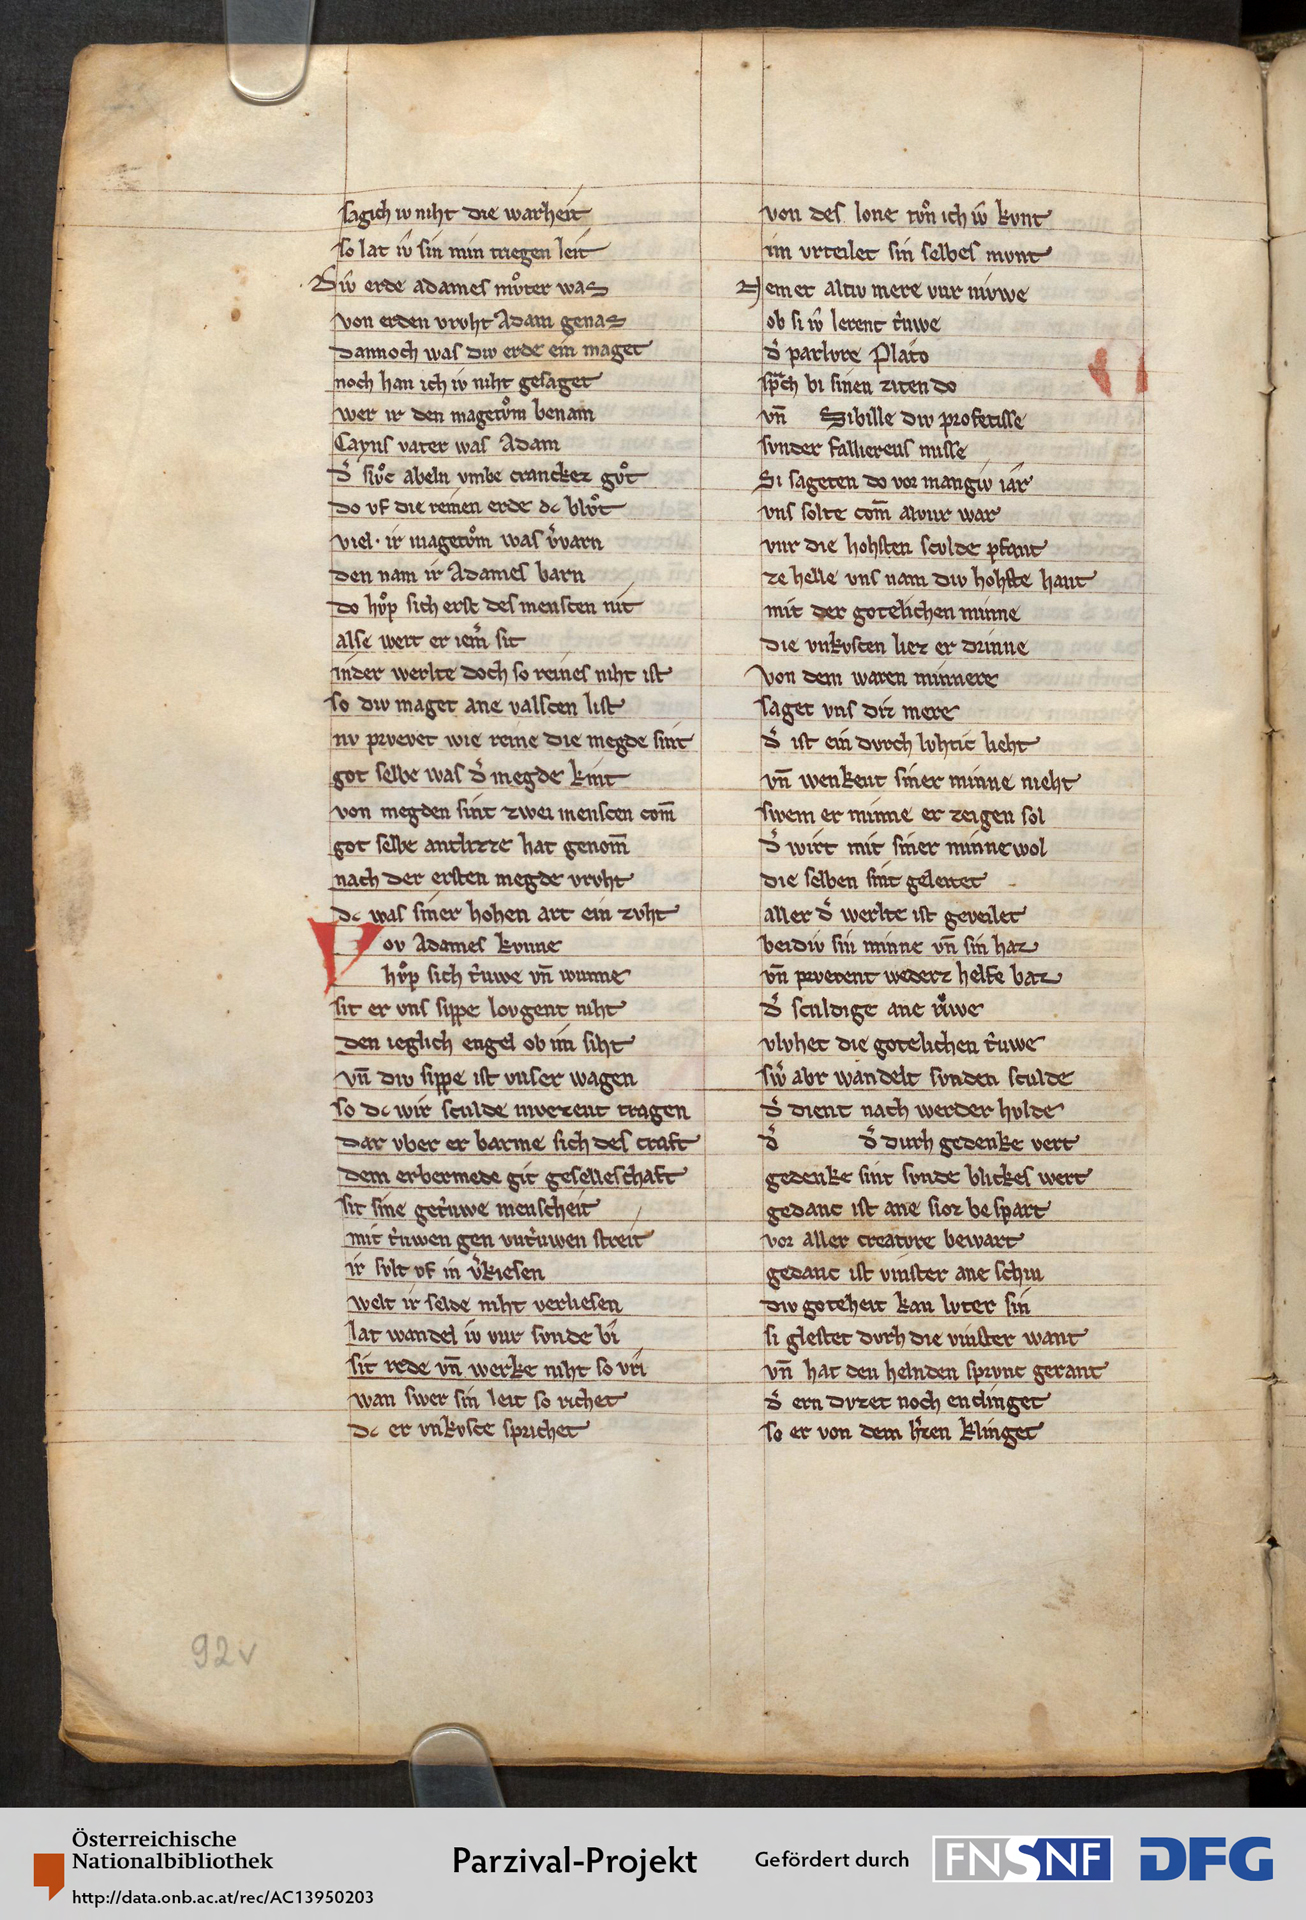 sagich iv niht die warheit
so lat iv̂ sin min triegen leit
Div̂ erde adames mv̊ter was
von erden vrvht Adam genas
dannoch was div erde ein maget
noch han ich iv niht gesaget
wer ir den magetv̊m benam
Cayns vater was Adam
d̾ slv̊c abeln vmbe crankez gv̊t
do vf die reinen erde dc blv̊t
viel· ir magetv̊m was v̾varn
den nam ir Adames barn
do hv̊p sich erst des menscen nit
alse wert er iem̾ sit
in der werlte doch so reines niht ist
so div maget ane valscen list
nv prvevet wie reine die megde sint
got selbe was d̾ megde kint
von megden sint zwei menscen com̄
got selbe antlvzze hat genom̄
nach der ersten megde vrvht
dc was siner hohen art ein zvht
Vov Adames kvnne
hv̊p sich t̾uwe vn̄ wunne
sit er vns sippe lovgent niht
den ieglich engel ob im siht
vn̄ div sippe ist vnser wagen
so dc wir sculde mvezent tragen
dar vber er barme sich des craft
dem erbermede git geselleschaft
sit sine get̾uwe menscheit
mit t̾uwen gen vnt̾uwen streit
ir svlt vf in v̾kiesen
welt ir selde niht verliesen
lat wandel iv vur sunde bi
sit rede vn̄ werke niht so vri
wan swer sin leit so richet
dc er vnkvsce sprichet
von des lone tv̊n ich iv̂ kvnt
im vrteilet sin selbes mvnt
Nemet altiv mere vur nivwe
ob si iv̂ lerent t̾uwe
d̾ parlvre Plato
sp̾ch bi sinen ziten do
vn̄ Sibille div profetisse
svnder fallierens misse
Si sageten do vor mangiv iar
vns solte com̄ alvur war
vur die hohsten scvlde pfant
ze helle vns nam div hohste hant
mit der gotelichen minne
die vnkvscen liez er drinne
Von dem waren minnere
saget vns diz mere
d̾ ist ein dvrch lvhtic lieht
vn̄ wenkent siner minne nieht
swem er minne er zeigen sol
d̾ wirt mit siner minne wol
die selben sint geleitet
aller d̾ werlte ist geveilet
beidiv sin minne vn̄ sin haz
vn̄ prvevent wederz helfe baz
d̾ sculdige ane rv̊we
vlvhet die gotelichen t̾uwe
sw̾ abr wandelt svnden sculde
d̾ dient nach werder hvlde
d̾ d̾ durh gedenke vert
gedenke sint svnde blickes wert
gedanc ist ane sloz bespart
vor aller creatvre bewart
gedanc ist vinster ane schin
div goteheit kan lvter sin
si glestet dvrh die vinster want
vn̄ hat den helnden sprvnc gerant
d̾ ern dvzet noch enclinget
so er von dem h̾zen klinget
92v
Österreichische
Nationalbibliothek
http://data.onb.ac.at/rec/AC13950203
Parzival-Projekt
Gefördert durch
FNSNF
DFG